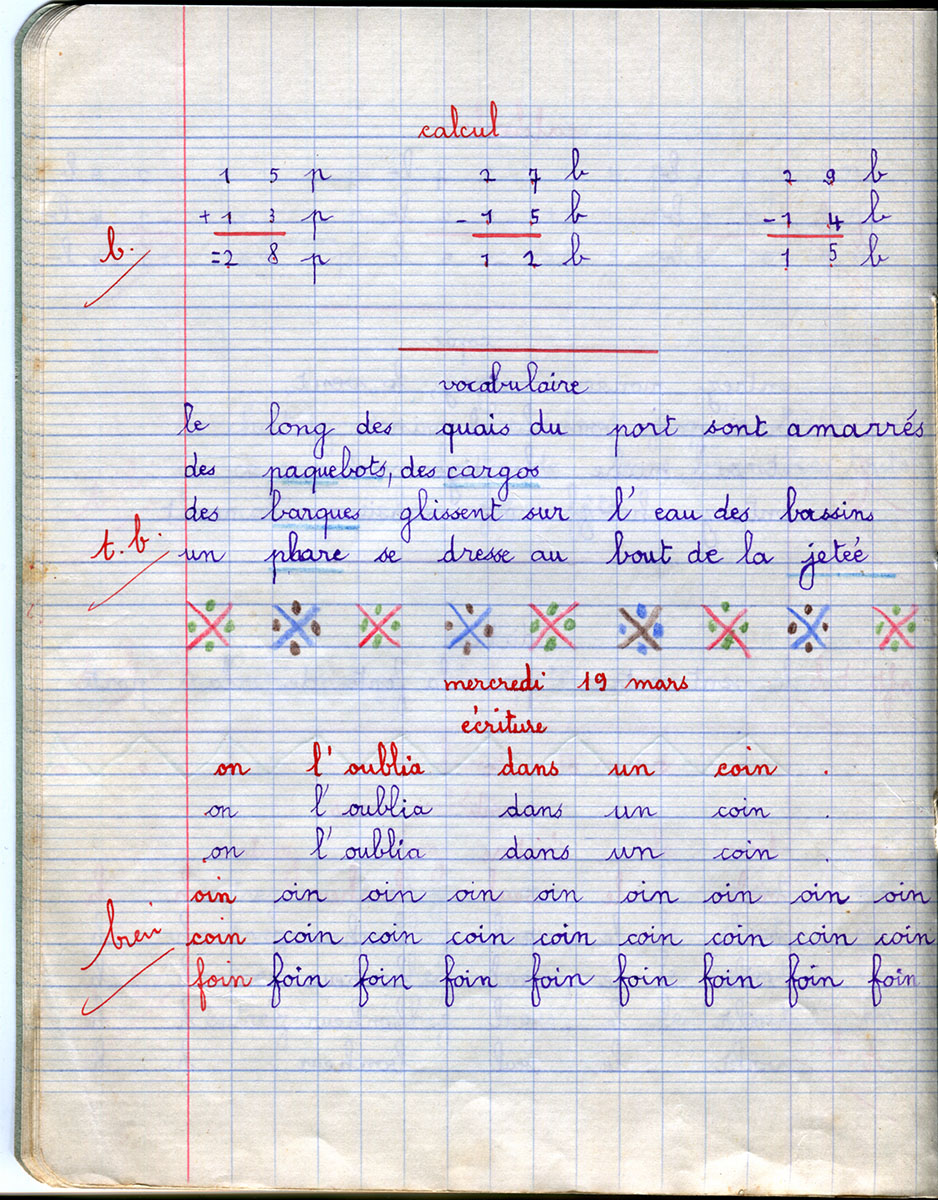 calcul
1 5 p 2 7 b 2 9 b
+1 3 p -1 5 b -1 4 b
b.
=2 8 p 1 2 b 1 5 b
vocabulaire
le long des quais du port sont amarrés
des paquebots, des cargos
des barques glissent sur l'eau des bassins
t.b. un phare se dresse au bout de la jetée
mercredi 19 mars
écriture
on l'oublia dans un coin .
on l'oublia dans un coin .
on l'oublia dans un coin .
oin oin oin oin oin oin oin oin oin
bien coin coin coin coin coin coin coin coin coin
foin foin foin foin foin foin foin foin foin